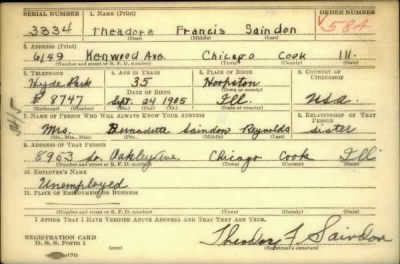 SERIAL NUMBER 1. NAME (Print) ORDER NUMBER
3334 Theodore Francis Saindon 58A
(First) (Middle) (Last)
2. ADDRESS (Print)
6149 Kenwood Ave. Chicago Cook Ill.
(Number and street or R. F. D. number) (Town) (County) (State)
3. TELEPHONE 4. AGE IN YEARS 5. PLACE OF BIRTH 6. COUNTRY OF CITIZENSHIP
Hyde Park 35 Hoopston
DATE OF BIRTH (Town or county)
8747 Sept. 24 1905 Ill. USA
(Exchange) (Number) (Mo.) (Day) (Yr.) (State or country)
7. NAME OF PERSON WHO WILL ALWAYS KNOW YOUR ADDRESS 8. RELATIONSHIP OF THAT PERSON
Mrs. Bernadette Saindon Reynolds sister
(Mr., Mrs., Miss) (First) (Middle) (Last)
9. ADDRESS OF THAT PERSON
8953 So. Oakley Ave. Chicago Cook Ill
(Number and street or R. F. D. number) (Town) (County) (State)
10. EMPLOYER'S NAME
Unemployed
11. PLACE OF EMPLOYMENT OR BUSINESS
(Number and street or R. F. D. number) (Town) (County) (State)
I AFFIRM THAT I HAVE VERIFIED ABOVE ANSWERS AND THAT THEY ARE TRUE.
REGISTRATION CARD
D. S. S. Form 1 Theodore F Saindon
(Registrant's signature)